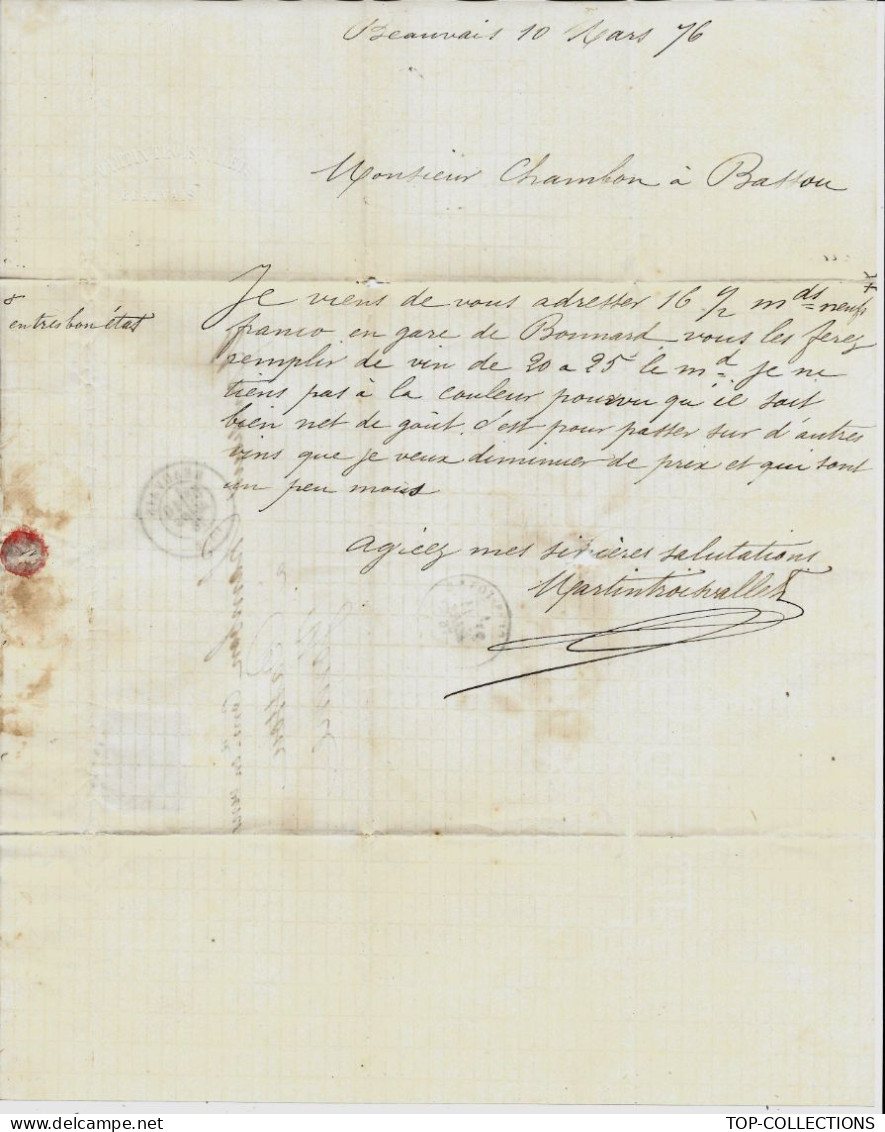 Beauvais 10 Mars 76
Monsieur Chambon à Bassou
Je viens de vous adresser 16 1/2 mds neufs
& en tres bon état
franco en gare de Bonnard vous les ferez
remplir de vin de 20 a 25f le md je ne
tiens pas à la couleur pourvu qu'il soit
bien net de goût. c'est pour passer sur d'autres
vins que je veux diminuer de prix et qui sont
un peu mous
Agréez mes sincères salutations
Martin
TOP-COLLECTIONS